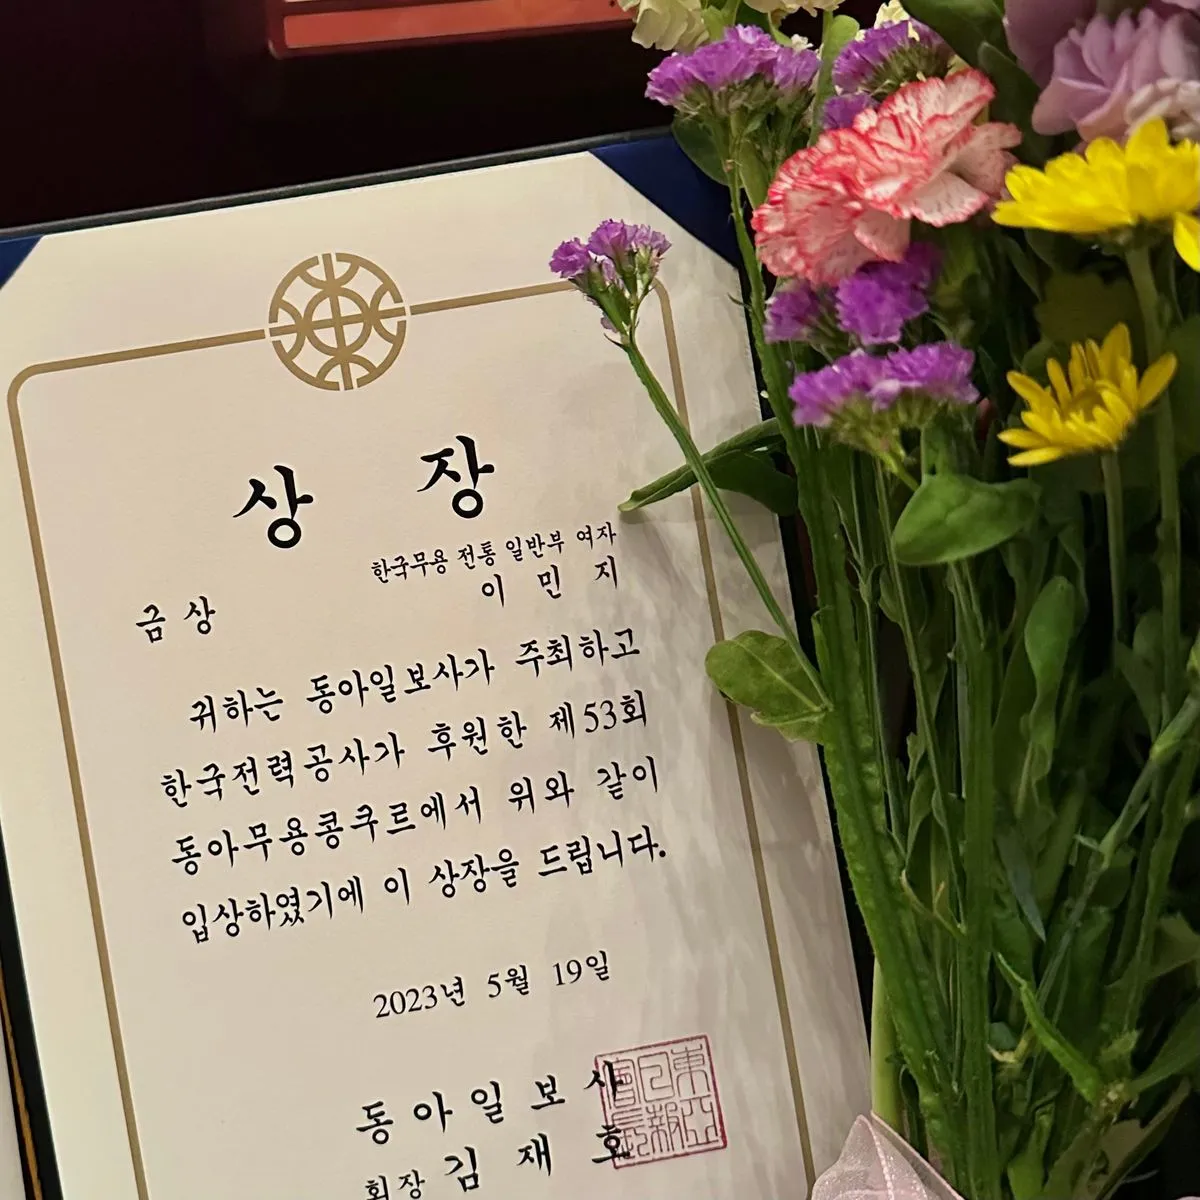 상 장
한국무용 전통 일반부 여자
금상 이 민 지
귀하는 동아일보사가 주최하고
한국전력공사가 후원한 제53회
동아무용콩쿠르에서 위와 같이
입상하였기에 이 상장을 드립니다.
2023년 5월 19일
동아일보사
회장 김 재 호